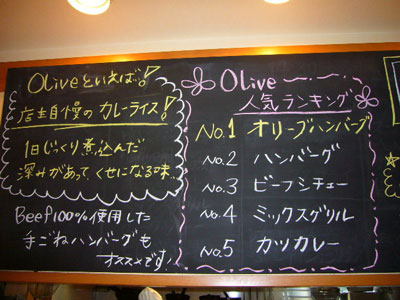 Oliveといえば!
店主自慢の カレーライス!
1日じっくり煮込んだ
深みがあって、くせになる味
Beef100%使用した
手ごねハンバーグも
オススメです!
Olive
人気ランキング
No.1 オリーブハンバーグ
No.2 ハンバーグ
No.3 ビーフシチュー
No.4 ミックスグリル
No.5 カツカレー